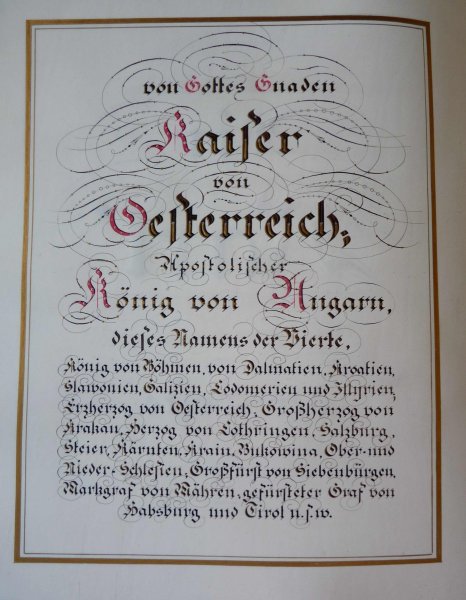 von Gottes Gnaden
Kaiſer
von
Oeſterreich,
Apostoliſcher
König von Ungarn,
dieſes Namens der Vierte,
König von Böhmen, von Dalmatien, Kroatien,
Slawonien, Galizien, Lodomerien und Illyrien,
Erzherzog von Oeſterreich, Großherzog von
Krakau, Herzog von Lothringen, Salzburg,
Steier, Kärnten, Krain, Bukowina, Ober- und
Nieder-Schleſien, Großfürst von Siebenbürgen,
Markgraf von Mähren, gefürſteter Graf von
Habsburg und Tirol u.ſ.w.